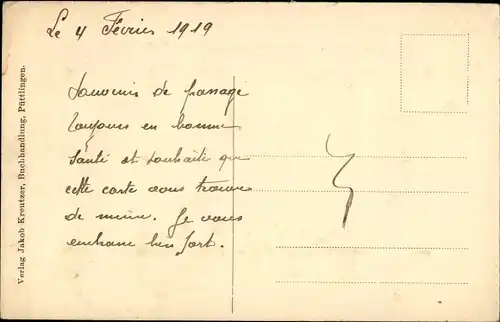 Le 4 Février 1919
Souvenis de passage
toujours en bonne
Santé et souhaite que
cette carte vous trouve
de même. Je vous
embrasse bien fort.
Verlag Jakob Kreutzer, Buchhandlung, Püttlingen.